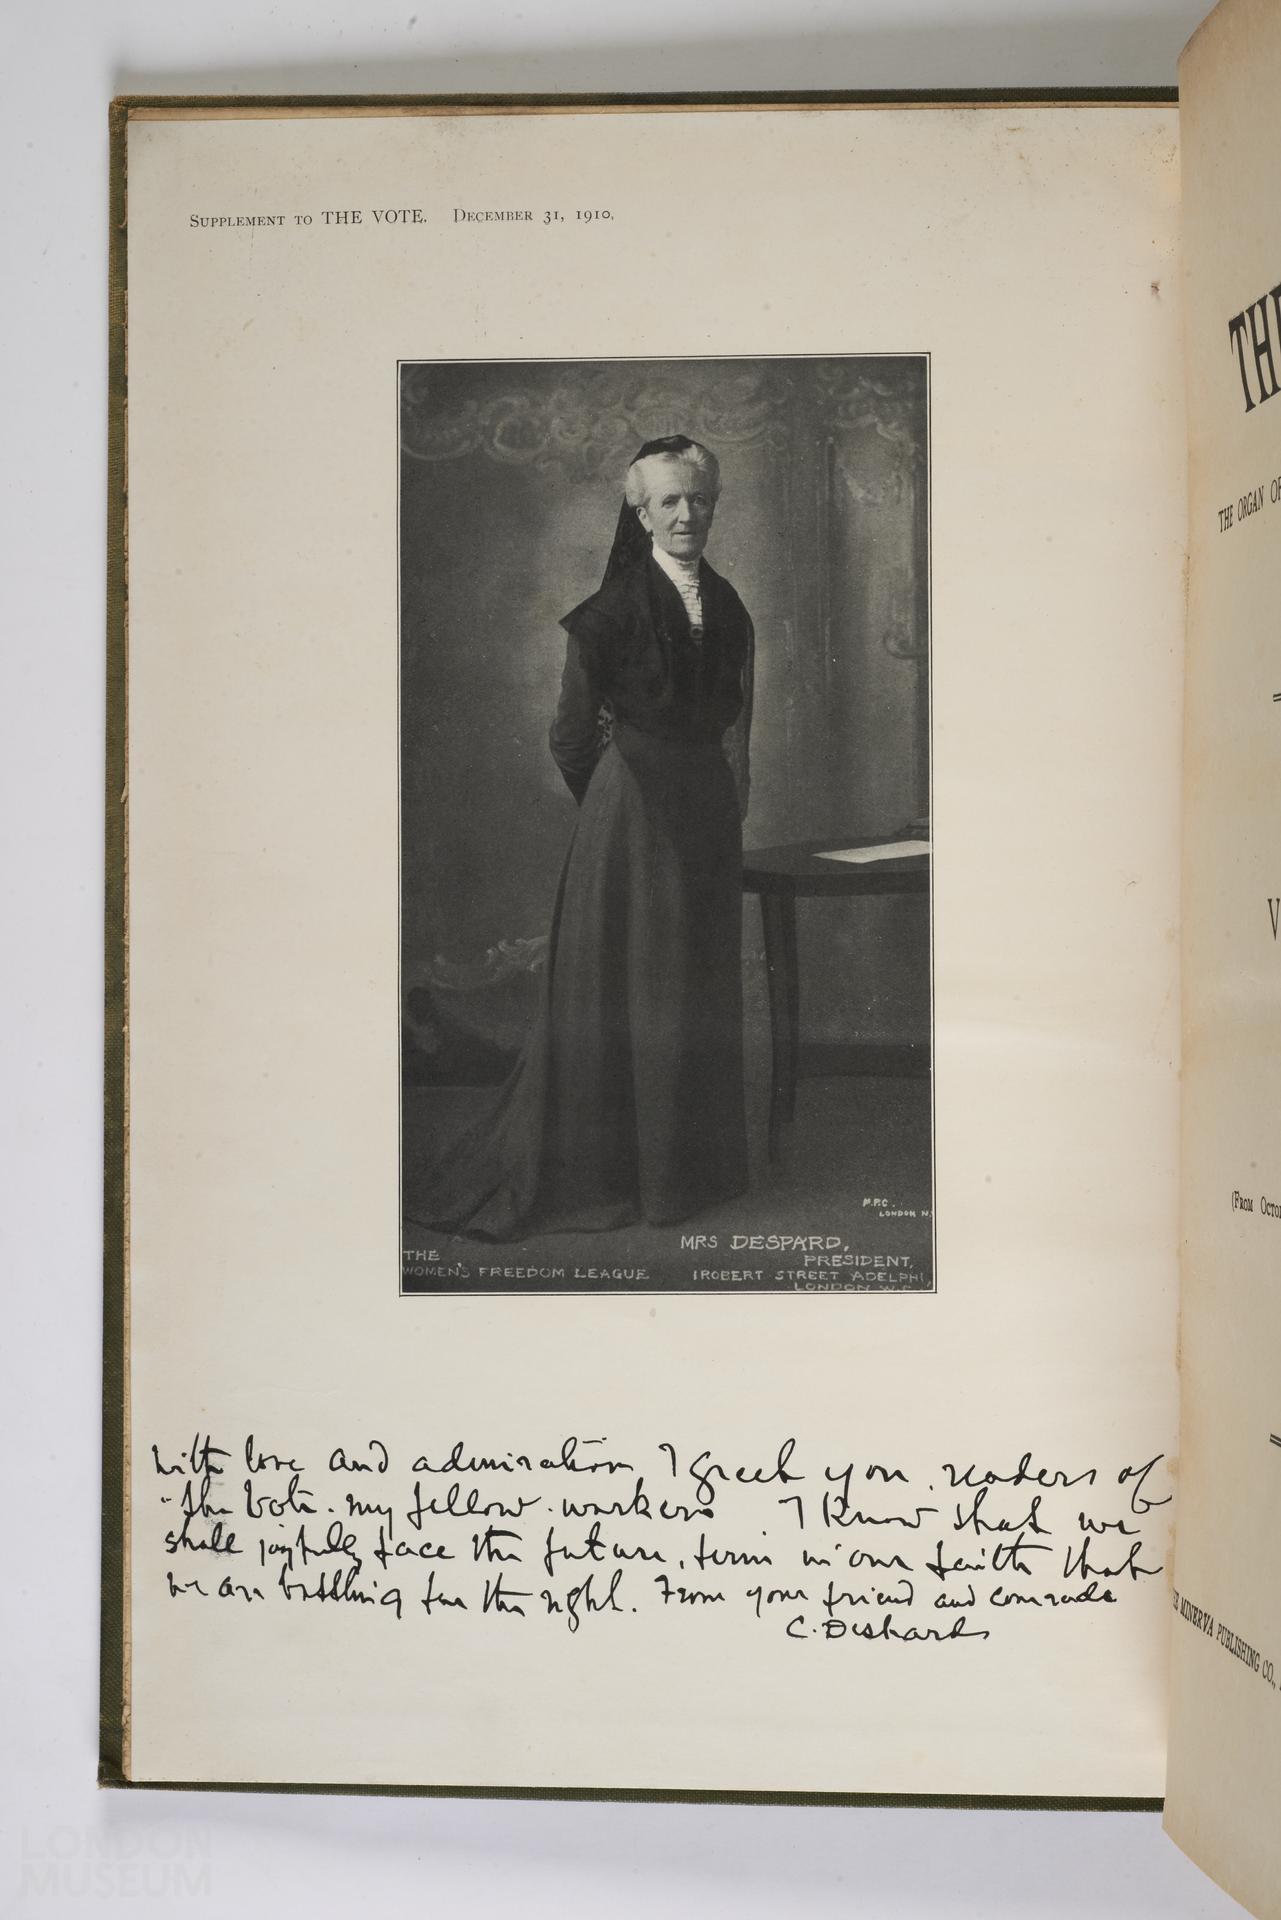 SUPPLEMENT TO THE VOTE. DECEMBER 31, 1910.
M.P.C.
LONDON N.
MRS DESPARD,
PRESIDENT,
THE
WOMEN'S FREEDOM LEAGUE
1 ROBERT STREET ADELPHI,
LONDON W.C.
With love and admiration I greet you, readers of
"The Vote. my fellow-workers. I know that we
shall joyfully face the future, firm in our faith that
we are battling for the right. From your friend and comrade
C. Despard
THE
THE ORGAN OF
V
(FROM OCTO
MINERVA PUBLISHING CO.,
LONDON
MUSEUM